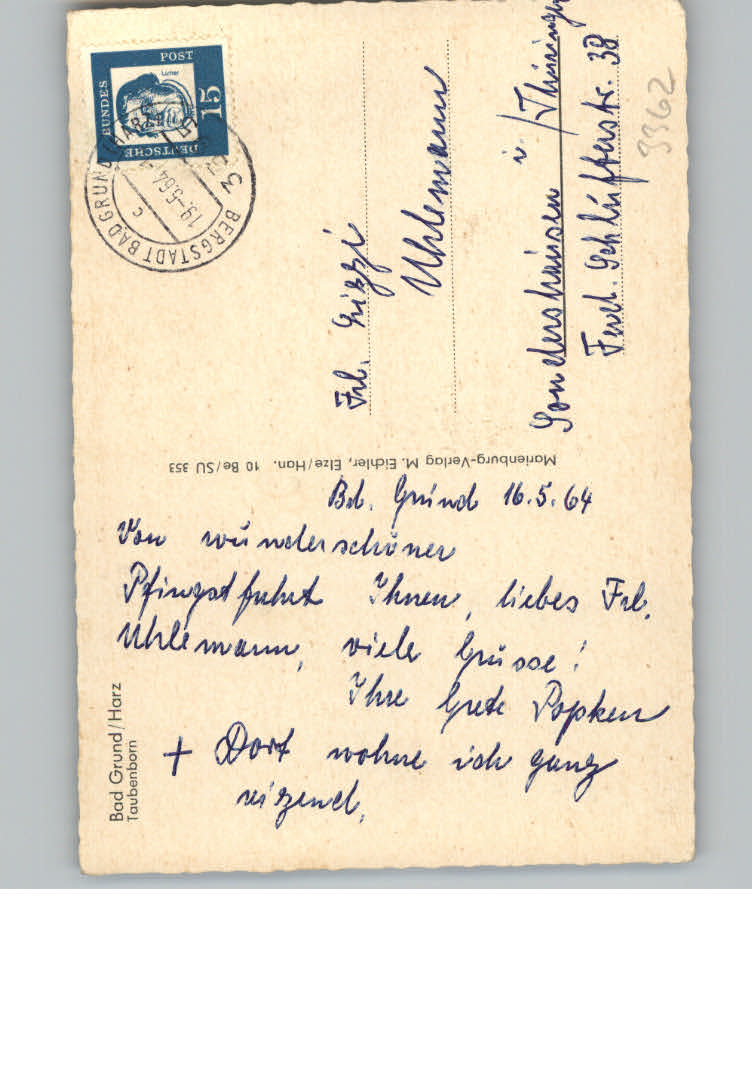 Bd. Grund 16.5.64
Von wunderschöner
Pfingstfahrt Ihnen, liebes Frl.
Uhlemann, viele Grüsse!
Ihre Grete Popken
+ Dort wohne ich ganz
reizend.
Frl. Lizzi
Uhlemann
Sondershausen i/Thüringen
Ferd. Schlüfterstr. 38
9962
Bad Grund/Harz
Taubenborn
Marienburg-Verlag M. Eichler, Elze/Han. 10 Be/SU 353
DEUTSCHE BUNDES POST
Luther
15
BERGSTADT BAD GRUND (HARZ)
19.-5.64
c